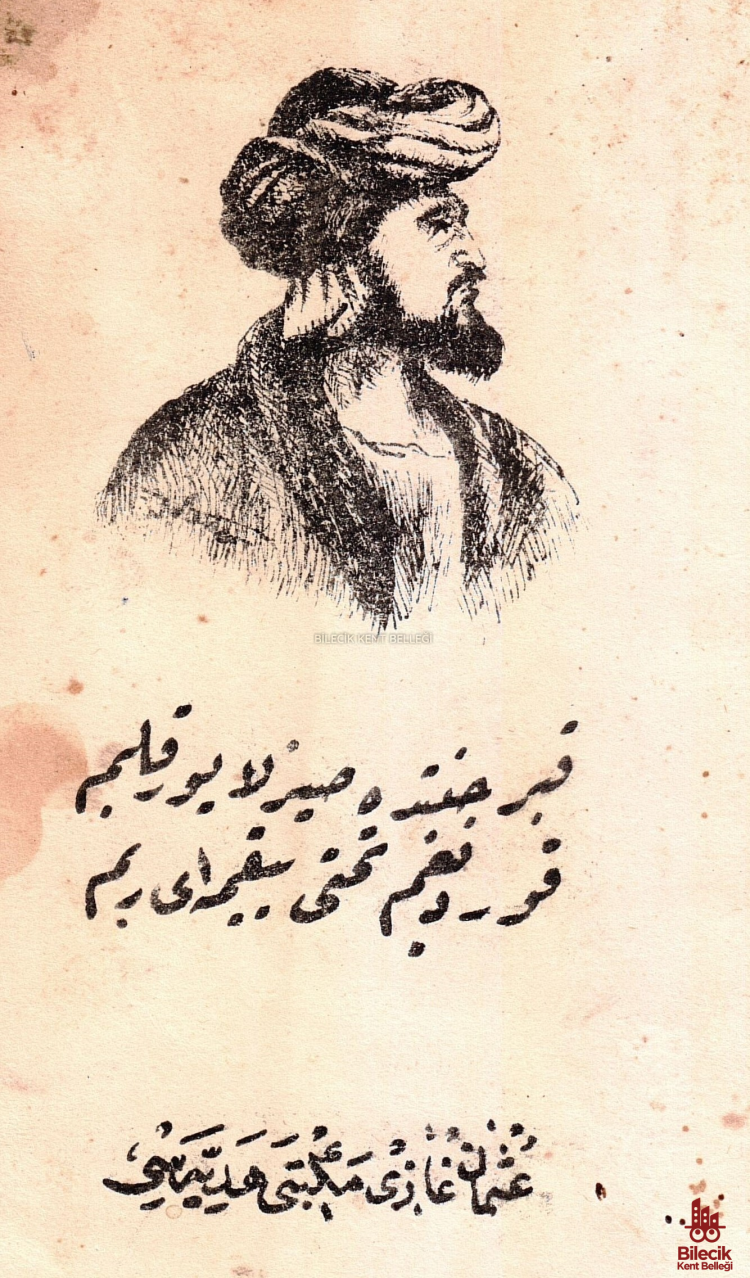 BİLECİK KENT BELLEĞİ
قبر جنتده صیزلایور قلبم
قوردیغم تختی ییقمه ای ربم
عثمان غازی مکتبی هدیه‌سی
Bilecik
Kent Belleği